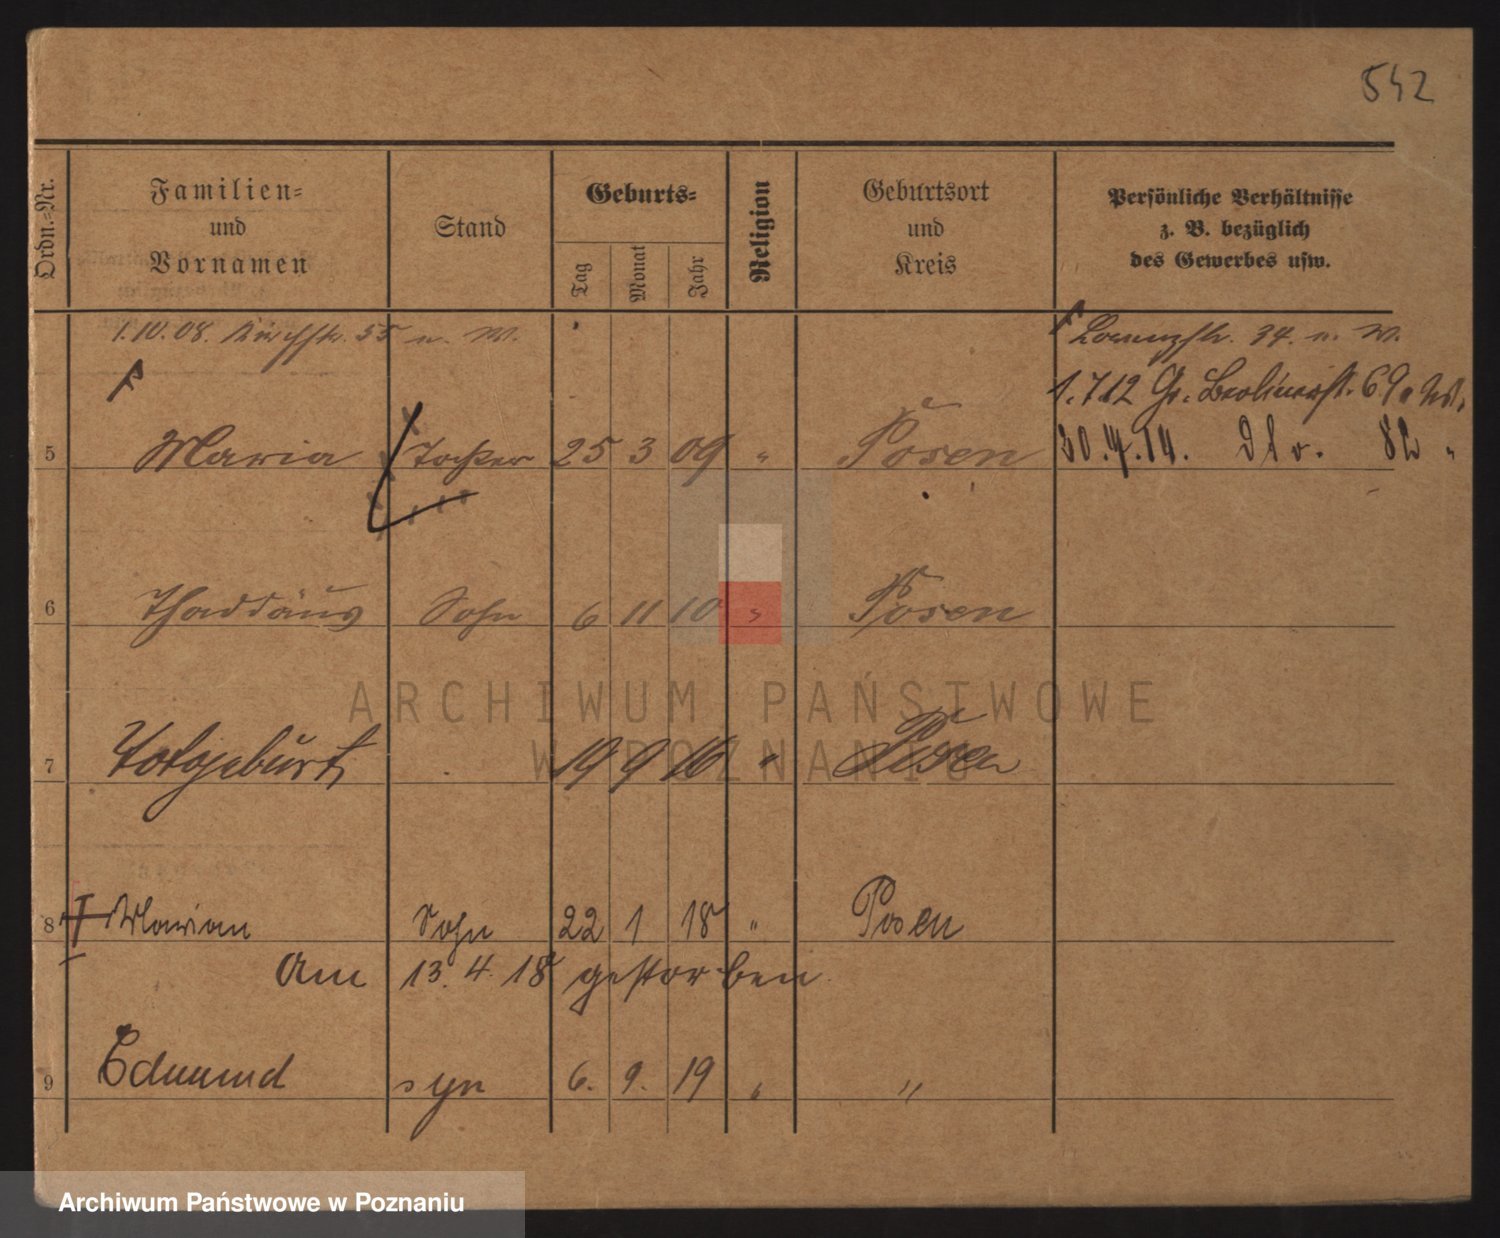 542
Ordn.=Nr.
Familien=
und
Vornamen
Stand
Geburts=
Tag
Monat
Jahr
Religion
Geburtsort
und
Kreis
Persönliche Verhältnisse
z. B. bezüglich
des Gewerbes usw.
1.10.08. Kirchstr. 55 n. W.
34. n. W.
1.7.12 Gr. Berlinerstr. 69 n. W.
30.4.14. 82 "
5 Maria Tochter 25 3 09 " Posen
6 Thaddäus Sohn 6 11 10 " Posen
ARCHIWUM PAŃSTWOWE
W POZNANIU
7 Totgeburt 19 9 16 " Posen
8 Marian Sohn 22 1 18 " Posen
Am 13.4.18 gestorben.
9 Edmund syn 6. 9. 19 " "
Archiwum Państwowe w Poznaniu